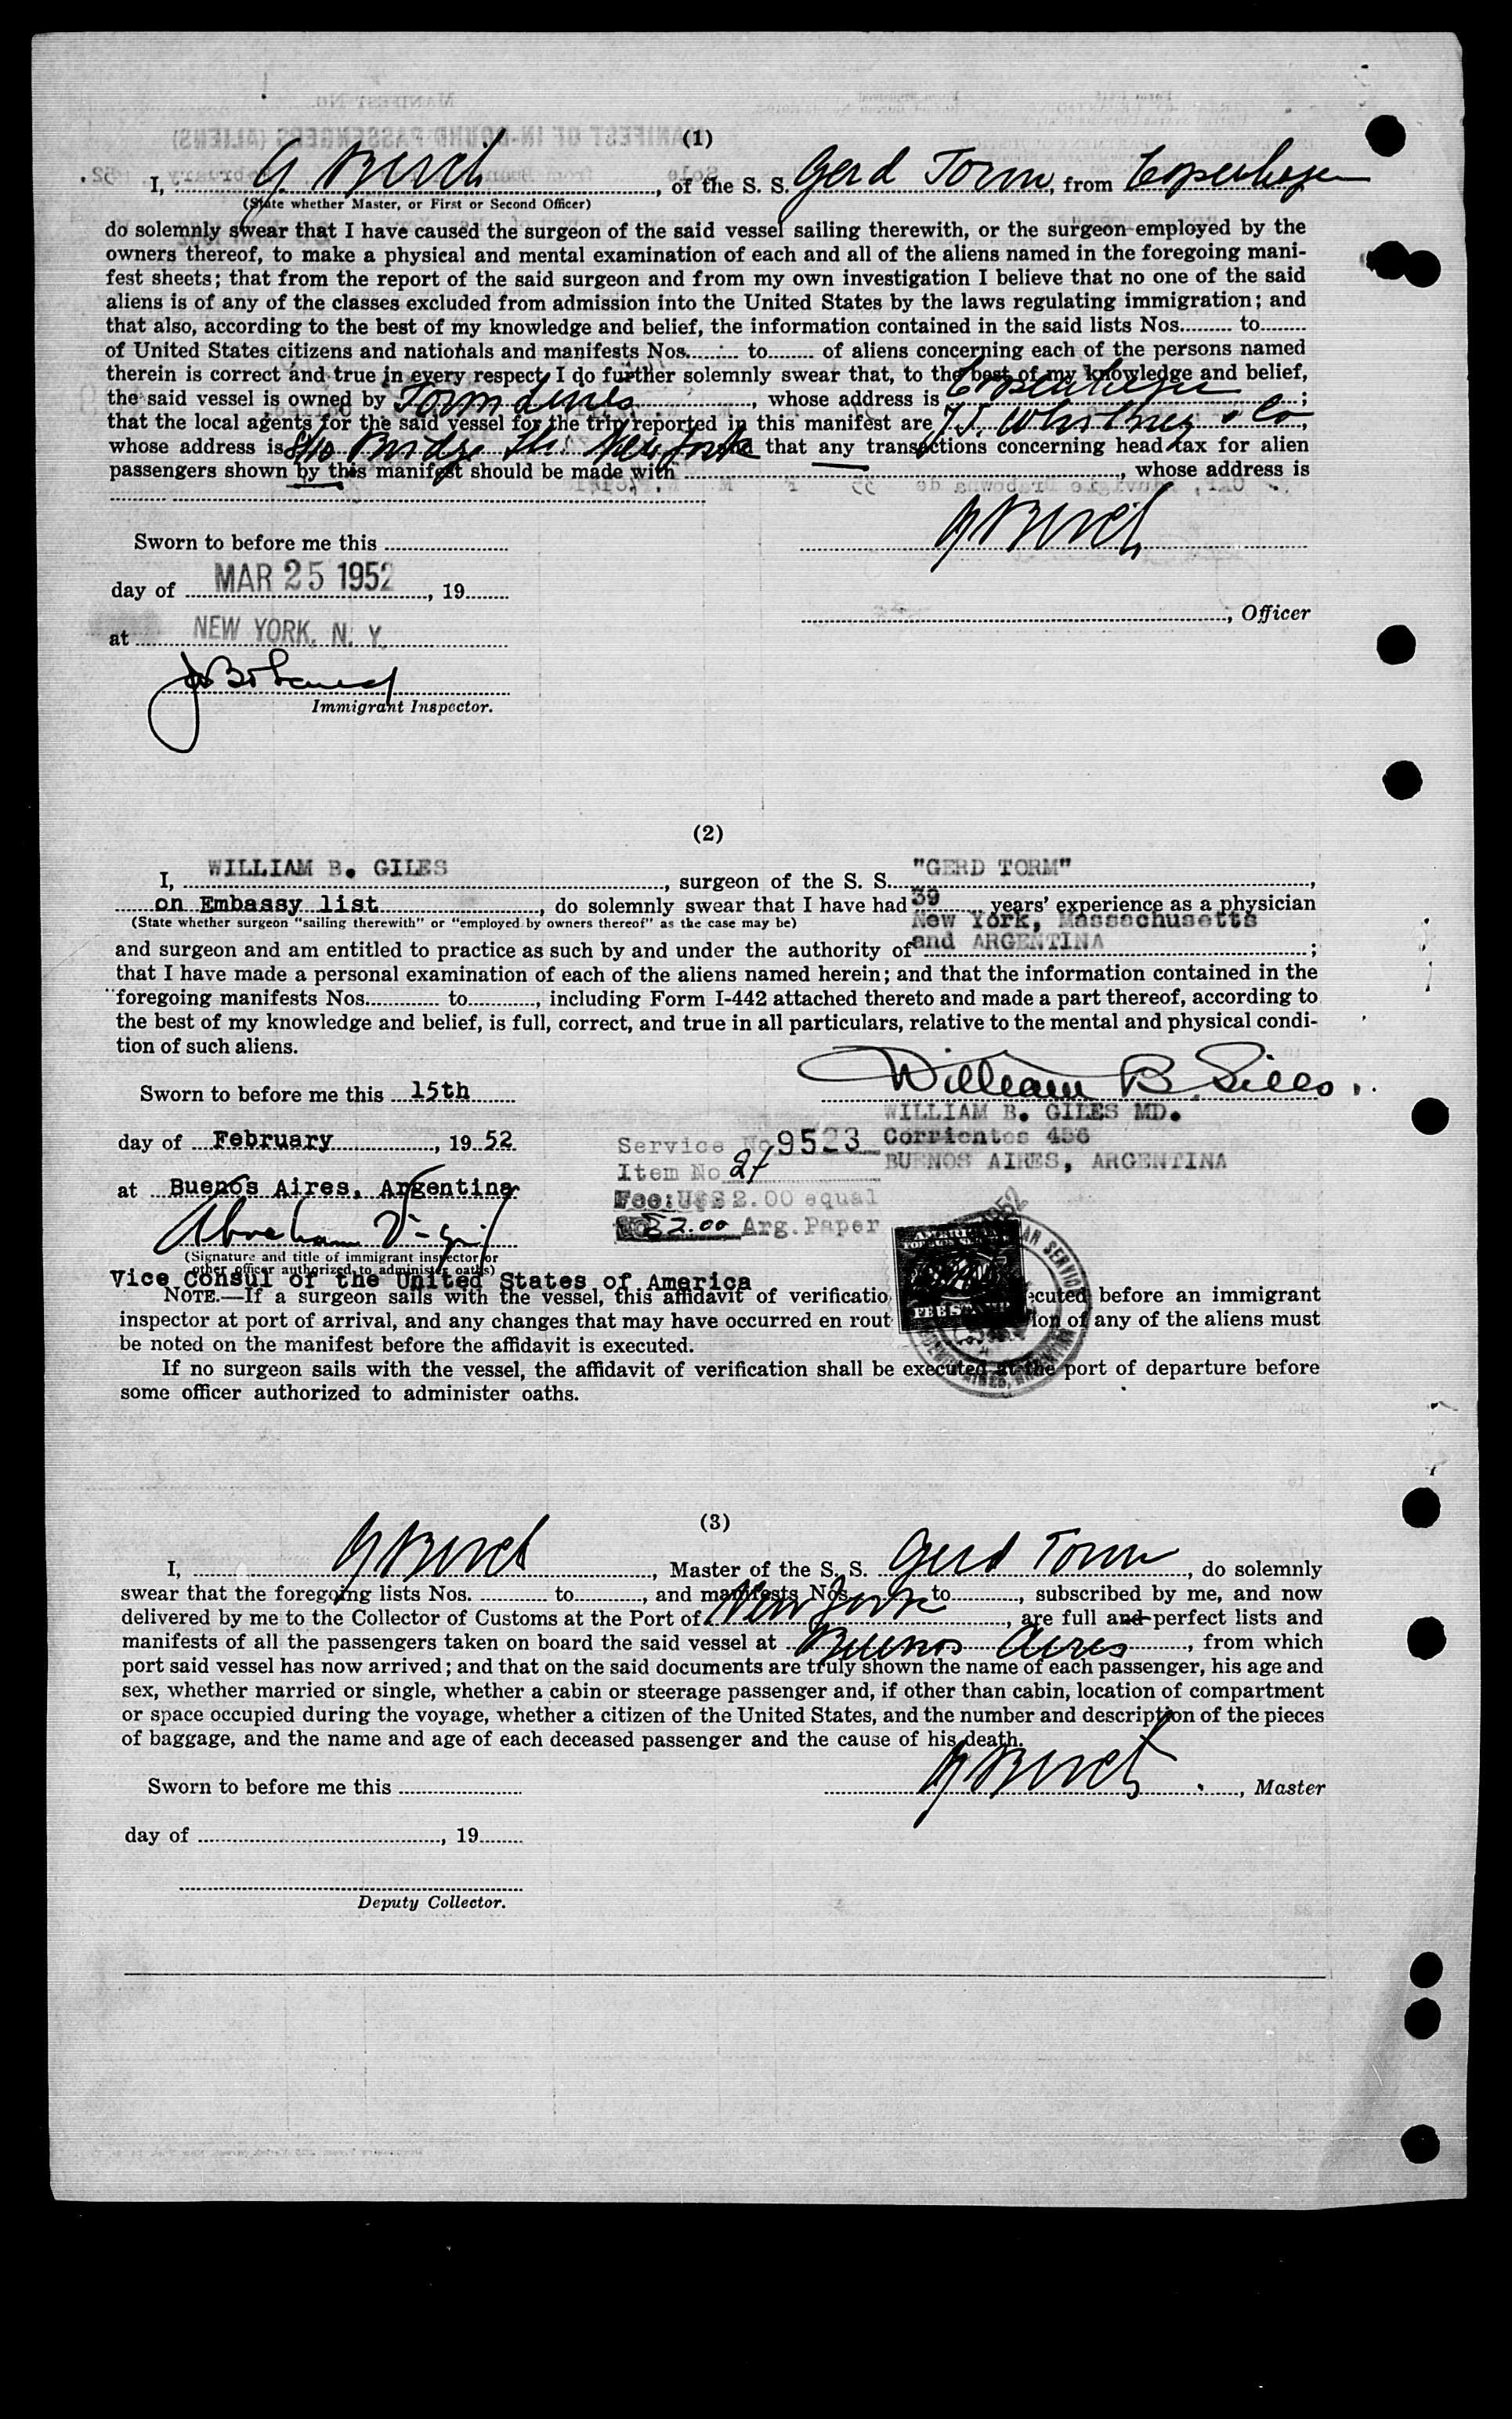 (1)
I, G Busch, of the S. S. Gerd Torm, from Copenhagen
(State whether Master, or First or Second Officer)
do solemnly swear that I have caused the surgeon of the said vessel sailing therewith, or the surgeon employed by the
owners thereof, to make a physical and mental examination of each and all of the aliens named in the foregoing mani-
fest sheets; that from the report of the said surgeon and from my own investigation I believe that no one of the said
aliens is of any of the classes excluded from admission into the United States by the laws regulating immigration; and
that also, according to the best of my knowledge and belief, the information contained in the said lists Nos. to
of United States citizens and nationals and manifests Nos. to of aliens concerning each of the persons named
therein is correct and true in every respect. I do further solemnly swear that, to the best of my knowledge and belief,
the said vessel is owned by Torm Lines, whose address is Copenhagen;
that the local agents for the said vessel for the trip reported in this manifest are
whose address is Bridge Str. New York and that any transactions concerning head tax for alien
passengers shown by this manifest should be made with, whose address is
Sworn to before me this
day of MAR 25 1952, 19
at NEW YORK, N. Y.
Officer
Immigrant Inspector.
(2)
I, WILLIAM B. GILES, surgeon of the S. S. "GERD TORM",
on Embassy list, do solemnly swear that I have had 39 years' experience as a physician
(State whether surgeon "sailing therewith" or "employed by owners thereof" as the case may be)
New York, Massachusetts
and surgeon and am entitled to practice as such by and under the authority of and ARGENTINA;
that I have made a personal examination of each of the aliens named herein; and that the information contained in the
foregoing manifests Nos. to, including Form I-442 attached thereto and made a part thereof, according to
the best of my knowledge and belief, is full, correct, and true in all particulars, relative to the mental and physical condi-
tion of such aliens.
William B. Giles.
Sworn to before me this 15th
WILLIAM B. GILES MD.
day of February, 19 52
Service No 9523 Corrientes 456
BUENOS AIRES, ARGENTINA
Item No 27
at Buenos Aires, Argentina
Fee: U$S 2.00 equal
2.00 Arg. Paper
Abraham
(Signature and title of immigrant inspector or
other officer authorized to administer oaths)
Vice Consul of the United States of America
NOTE.—If a surgeon sails with the vessel, this affidavit of verificatio ecuted before an immigrant
inspector at port of arrival, and any changes that may have occurred en rout ion of any of the aliens must
be noted on the manifest before the affidavit is executed.
If no surgeon sails with the vessel, the affidavit of verification shall be executed at the port of departure before
some officer authorized to administer oaths.
(3)
I, G Busch, Master of the S. S. Gerd Torm, do solemnly
swear that the foregoing lists Nos. to, and manifests Nos. to, subscribed by me, and now
delivered by me to the Collector of Customs at the Port of New York, are full and perfect lists and
manifests of all the passengers taken on board the said vessel at Buenos Aires, from which
port said vessel has now arrived; and that on the said documents are truly shown the name of each passenger, his age and
sex, whether married or single, whether a cabin or steerage passenger and, if other than cabin, location of compartment
or space occupied during the voyage, whether a citizen of the United States, and the number and description of the pieces
of baggage, and the name and age of each deceased passenger and the cause of his death.
Sworn to before me this
G Busch, Master
day of, 19
Deputy Collector.